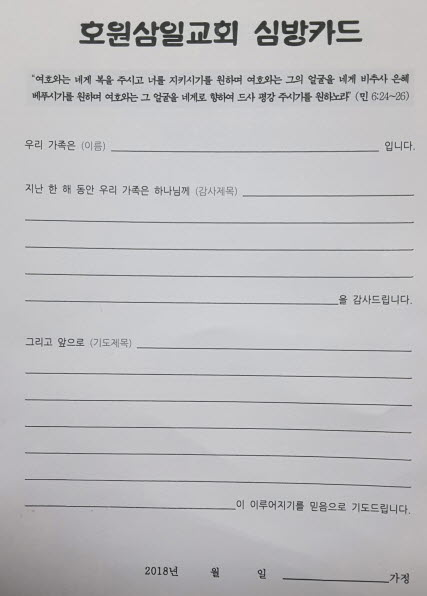 호원삼일교회 심방카드
"여호와는 네게 복을 주시고 너를 지키시기를 원하며 여호와는 그의 얼굴을 네게 비추사 은혜
베푸시기를 원하며 여호와는 그 얼굴을 네게로 향하여 드사 평강 주시기를 원하노라" (민 6:24~26)
우리 가족은 (이름) 입니다.
지난 한 해 동안 우리 가족은 하나님께 (감사제목)
을 감사드립니다.
그리고 앞으로 (기도제목)
이 이루어지기를 믿음으로 기도드립니다.
2018년 월 일 가정